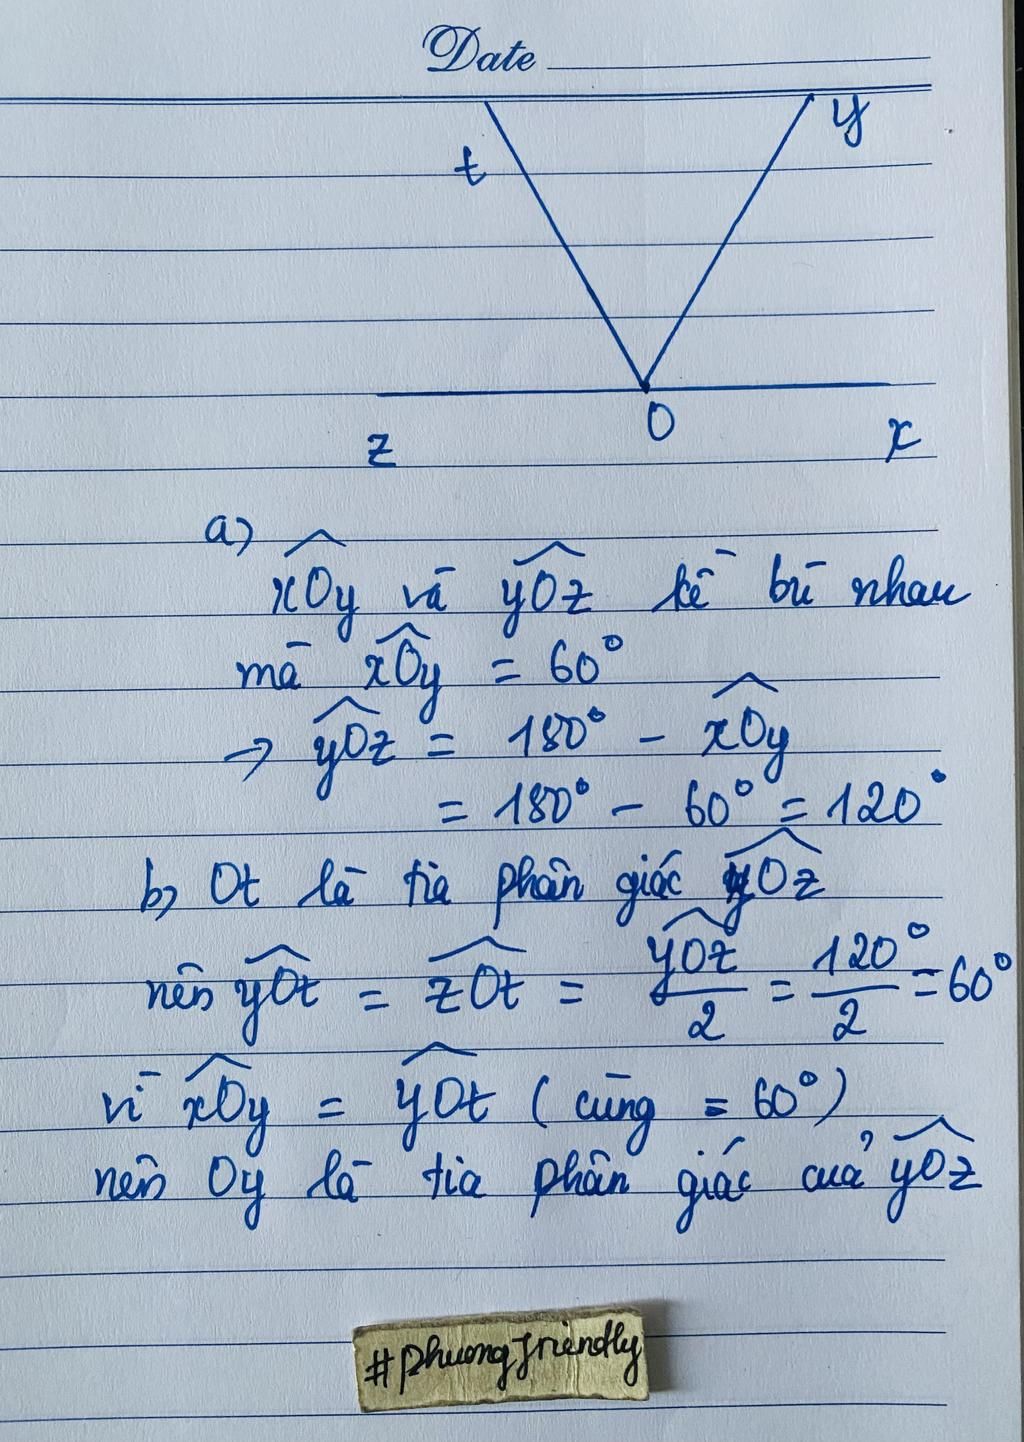 Date
t
y
O
z
x
a)
xOy và yOz kề bù nhau
mà xOy = 60°
→ yOz = 180° - xOy
= 180° - 60° = 120°
b, Ot là tia phân giác yOz
nên yOt = zOt = yOz/2 = 120°/2 = 60°
vì xOy = yOt (cùng = 60°)
nên Oy là tia phân giác của yOz
#phuongfriendly